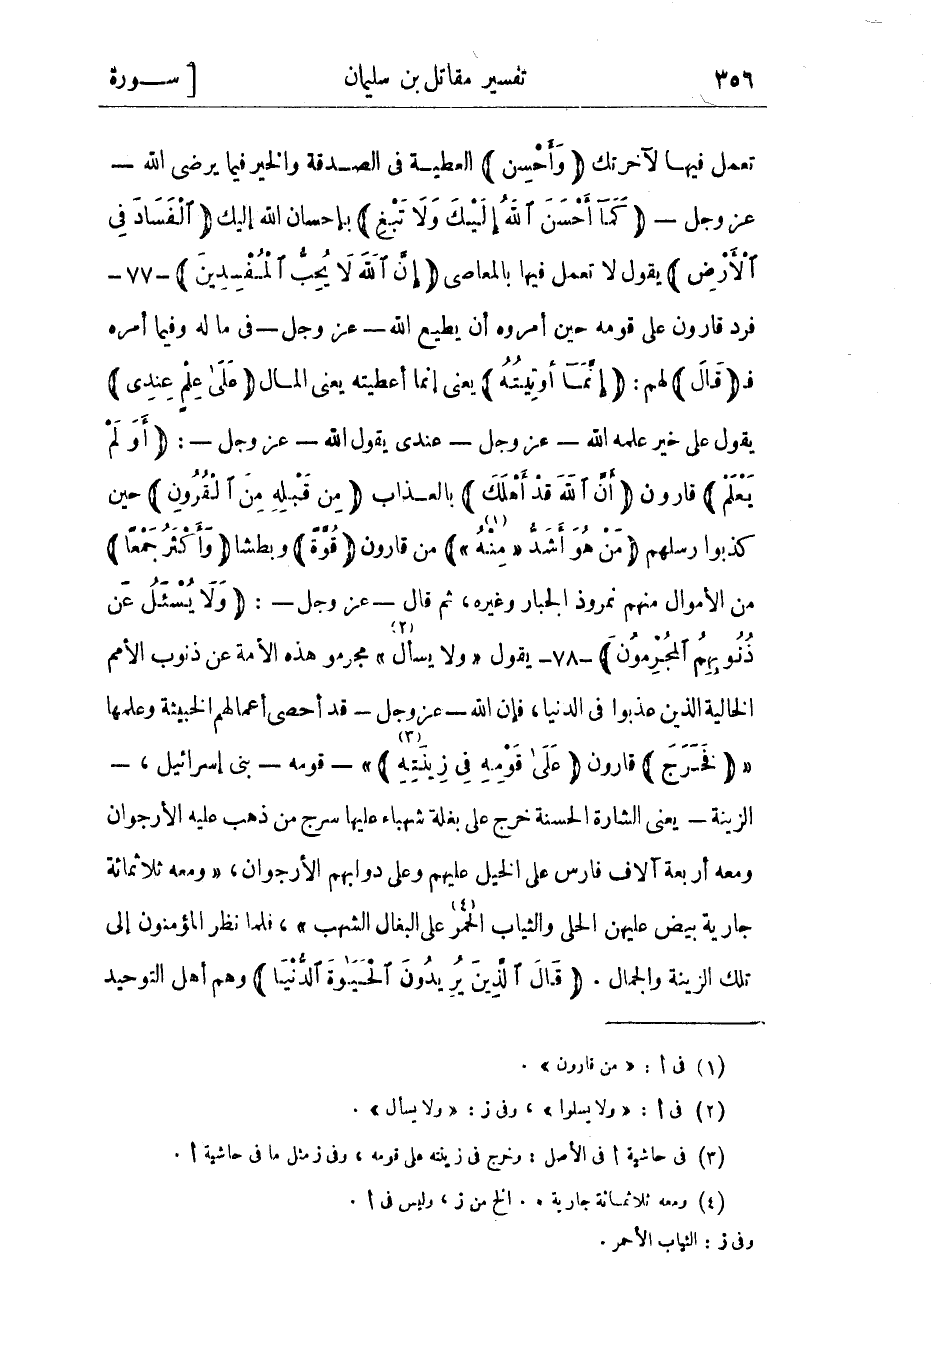 ٣٥٦ تفسير مقاتل بن سليمان [ سـورة
تعمل فيها لآخرتك ( وَأَحْسِن ) العطية فى الصدقة والخير فيما يرضى الله —
عز وجل — ( كَمَآ أَحْسَنَ ٱللَّهُ إِلَيْكَ وَلَا تَبْغِ ) بإحسان الله إليك ( ٱلْفَسَادَ فِى
ٱلْأَرْضِ ) يقول لا تعمل فيها بالمعاصى ( إِنَّ ٱللَّهَ لَا يُحِبُّ ٱلْمُفْسِدِينَ ) -٧٧-
فرد قارون على قومه حين أمروه أن يطيع الله — عز وجل — فى ما له وفيما أمره
فـ ( قَالَ ) لهم : ( إِنَّمَآ أُوتِيتُهُ ) يعنى إنما أعطيته يعنى المال ( عَلَىٰ عِلْمٍ عِندِى )
يقول على خير علمه الله — عز وجل — عندى يقول الله — عز وجل — : ( أَوَ لَمْ
يَعْلَمْ ) قارون ( أَنَّ ٱللَّهَ قَدْ أَهْلَكَ ) بالعذاب ( مِن قَبْلِهِ مِنَ ٱلْقُرُونِ ) حين
كذبوا رسلهم ( مَنْ هُوَ أَشَدُّ « مِنْهُ » (١) ) من قارون ( قُوَّةً ) وبطشا ( وَأَكْثَرُ جَمْعًا )
من الأموال منهم نمروذ الجبار وغيره ، ثم قال — عز وجل — : ( وَلَا يُسْـَٔلُ عَن
ذُنُوبِهِمُ ٱلْمُجْرِمُونَ ) -٧٨- يقول « ولا يسأل » (٢) مجرمو هذه الأمة عن ذنوب الأمم
الخالية الذين عذبوا فى الدنيا ، فإن الله — عز وجل — قد أحصى أعمالهم الخبيثة وعلمها
« ( فَخَرَجَ ) قارون ( عَلَىٰ قَوْمِهِ فِى زِينَتِهِ ) » (٣) — قومه — بنى إسرائيل ، —
الزينة — يعنى الشارة الحسنة خرج على بغلة شهباء عليها سرج من ذهب عليه الأرجوان
ومعه أربعة آلاف فارس على الخيل عليهم وعلى دوابهم الأرجوان ، « ومعه ثلاثمائة
جارية بيض عليهن الحلى والثياب الحمر على البغال الشهب » (٤) ، فلما نظر المؤمنون إلى
تلك الزينة والجمال . ( قَالَ ٱلَّذِينَ يُرِيدُونَ ٱلْحَيَوٰةَ ٱلدُّنْيَا ) وهم أهل التوحيد
(١) فى أ : « من قارون » .
(٢) فى أ : « ولا يسلوا » ، وفى ز : « ولا يسأل » .
(٣) فى حاشية أ فى الأصل : وخرج فى زينته على قومه ، وفى ز مثل ما فى حاشية أ .
(٤) ومعه ثلاثمائة جارية .. الخ من ز ، وليس فى أ .
وفى ز : الثياب الأحمر .